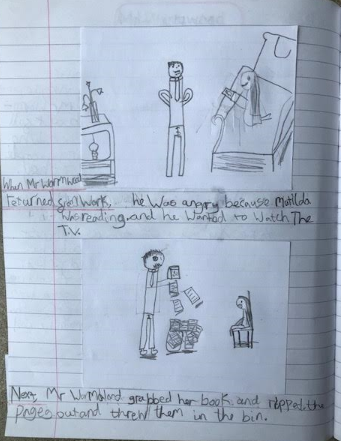 When Mr Wormwood
returned from work, he was angry because Matilda
was reading and he wanted to watch The
T.V.
Next, Mr Wormwood grabbed her book and ripped the
pages out and threw them in the bin.